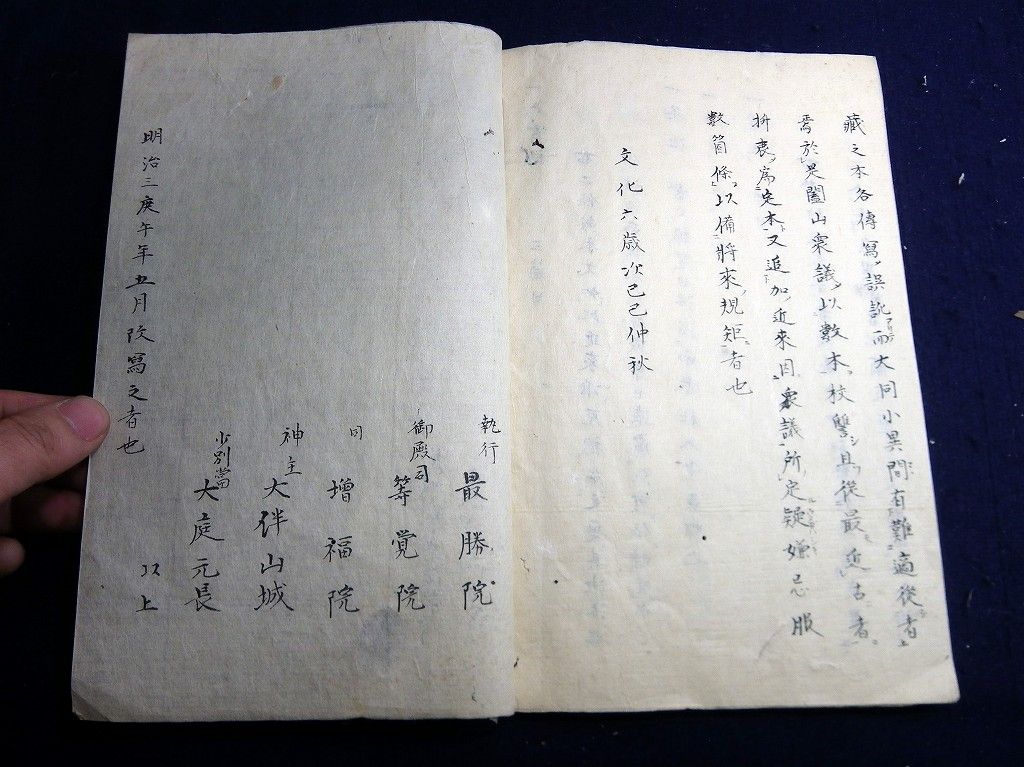 藏之本各傳寫ノ誤訛而大同小異間有難適從者
焉於是闔山衆議ノ以數本校讐シ且從最近古者
折衷シ為定本又追加近來因衆議所定疑嫌忌服
數箇條以備將來規矩者也
文化六歳次己巳仲秋
執行 最勝院
御殿司 等覚院
同 增福院
神主 大伴山城
小別當 大庭元長
以上
明治三庚午年五月改寫之者也